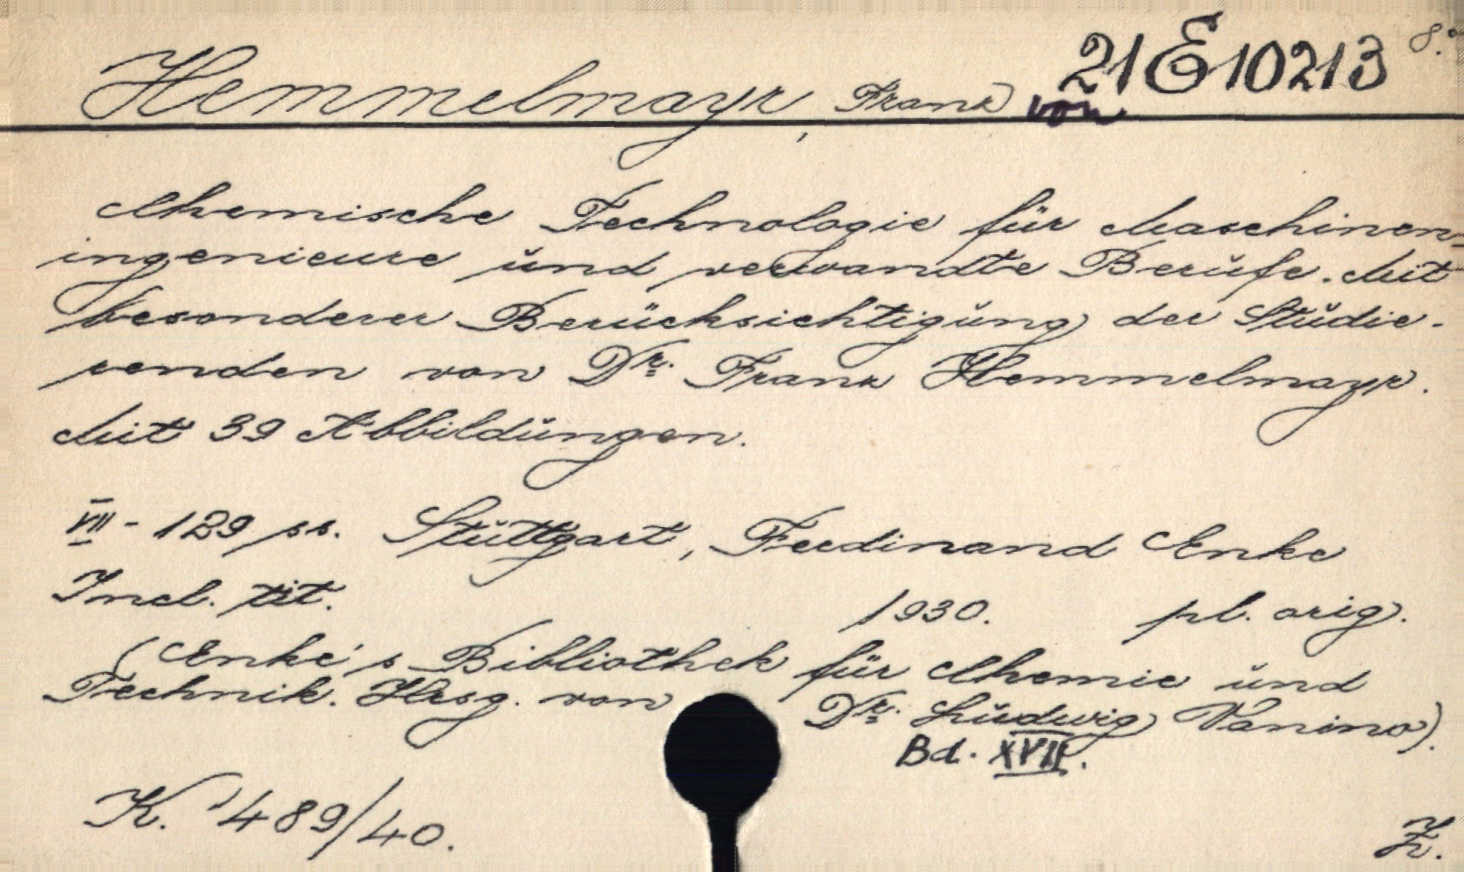 21 E 10213 8°
Hemmelmayr, Franz von
Chemische Technologie für Maschinen-
ingenieure und verwandte Berufe. Mit
besonderer Berücksichtigung der Studie-
renden von Dr. Franz Hemmelmayr.
Mit 39 Abbildungen.
VIII - 129 ss. Stuttgart, Ferdinand Enke
Incl. tit. 1930. pl. orig.
(Enke's Bibliothek für Chemie und
Technik. Hrsg. von Dr. Ludwig Vanino).
Bd. XVII.
K. 1489/40.